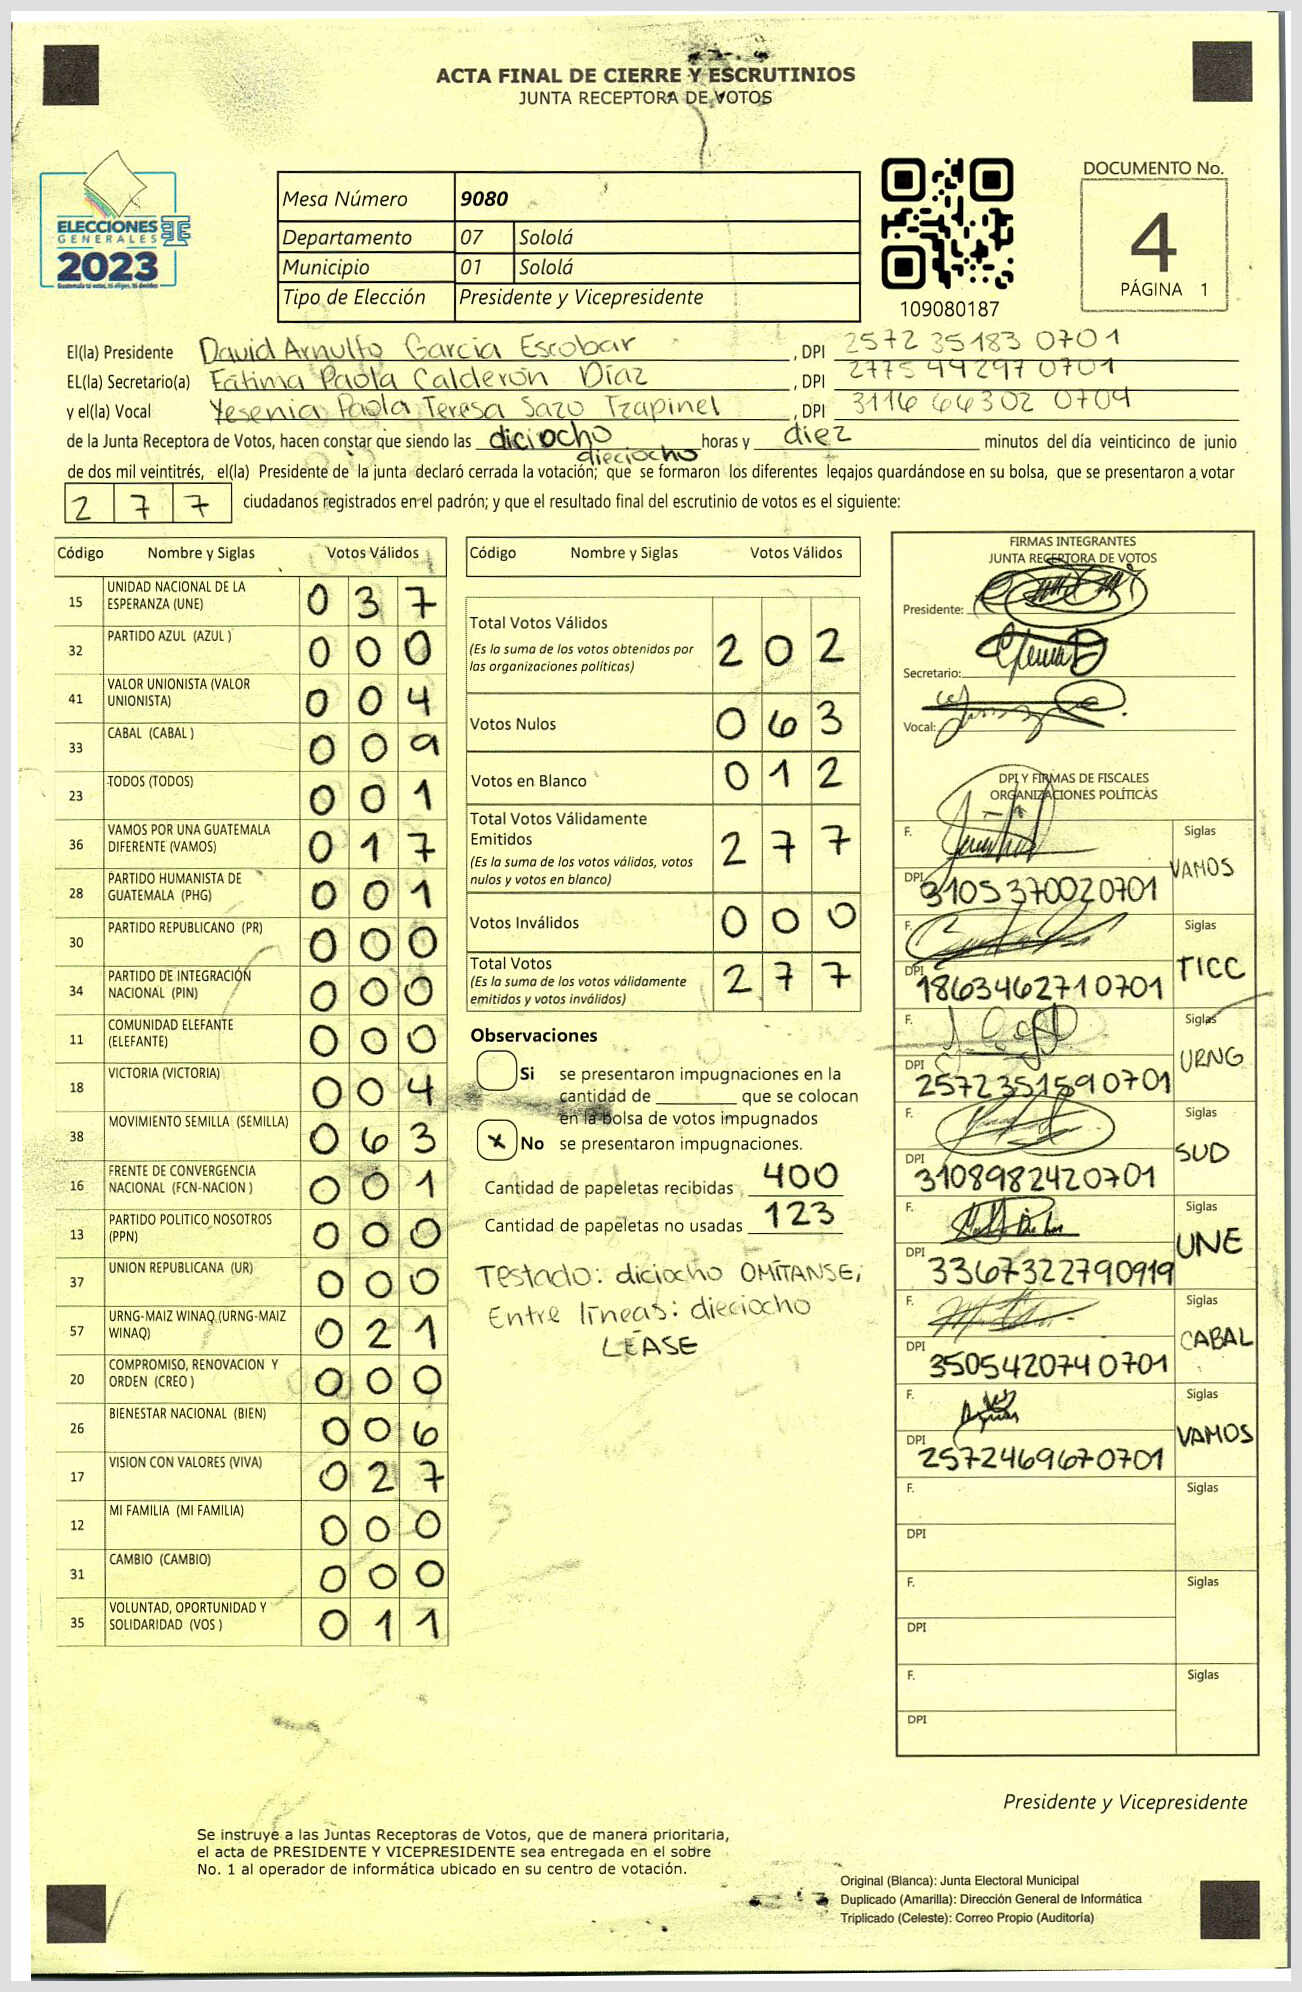 ACTA FINAL DE CIERRE Y ESCRUTINIOS
JUNTA RECEPTORA DE VOTOS
ELECCIONES
GENERALES
2023
Mesa Número 9080
Departamento 07 Sololá
Municipio 01 Sololá
Tipo de Elección Presidente y Vicepresidente
109080187
DOCUMENTO No.
4
PÁGINA 1
El(la) Presidente David Arnulfo Garcia Escobar, DPI 2572 35183 0701
EL(la) Secretario(a) Fátima Paola Calderón Díaz, DPI 2775 99297 0701
y el(la) Vocal Yesenia Paola Teresa Sazo Tzapinel, DPI 3116 66302 0704
de la Junta Receptora de Votos, hacen constar que siendo las diciocho horas y diez minutos del día veinticinco de junio
dieciocho
de dos mil veintitrés, el(la) Presidente de la junta declaró cerrada la votación; que se formaron los diferentes legajos guardándose en su bolsa, que se presentaron a votar
277 ciudadanos registrados en el padrón; y que el resultado final del escrutinio de votos es el siguiente:
Código Nombre y Siglas Votos Válidos
15 UNIDAD NACIONAL DE LA ESPERANZA (UNE) 037
32 PARTIDO AZUL (AZUL ) 000
41 VALOR UNIONISTA (VALOR UNIONISTA) 004
33 CABAL (CABAL ) 009
23 TODOS (TODOS) 001
36 VAMOS POR UNA GUATEMALA DIFERENTE (VAMOS) 017
28 PARTIDO HUMANISTA DE GUATEMALA (PHG) 001
30 PARTIDO REPUBLICANO (PR) 000
34 PARTIDO DE INTEGRACIÓN NACIONAL (PIN) 000
11 COMUNIDAD ELEFANTE (ELEFANTE) 000
18 VICTORIA (VICTORIA) 004
38 MOVIMIENTO SEMILLA (SEMILLA) 063
16 FRENTE DE CONVERGENCIA NACIONAL (FCN-NACION ) 001
13 PARTIDO POLITICO NOSOTROS (PPN) 000
37 UNION REPUBLICANA (UR) 000
57 URNG-MAIZ WINAQ (URNG-MAIZ WINAQ) 021
20 COMPROMISO, RENOVACION Y ORDEN (CREO ) 000
26 BIENESTAR NACIONAL (BIEN) 006
17 VISION CON VALORES (VIVA) 027
12 MI FAMILIA (MI FAMILIA) 000
31 CAMBIO (CAMBIO) 000
35 VOLUNTAD, OPORTUNIDAD Y SOLIDARIDAD (VOS ) 011
Código Nombre y Siglas Votos Válidos
Total Votos Válidos 202
(Es la suma de los votos obtenidos por
las organizaciones políticas)
Votos Nulos 063
Votos en Blanco 012
Total Votos Válidamente
Emitidos 277
(Es la suma de los votos válidos, votos
nulos y votos en blanco)
Votos Inválidos 000
Total Votos 277
(Es la suma de los votos válidamente
emitidos y votos inválidos)
Observaciones
Si se presentaron impugnaciones en la
cantidad de ________ que se colocan
en la bolsa de votos impugnados
x No se presentaron impugnaciones.
Cantidad de papeletas recibidas 400
Cantidad de papeletas no usadas 123
Testado: diciocho OMÍTANSE,
Entre líneas: dieciocho
LÉASE
FIRMAS INTEGRANTES
JUNTA RECEPTORA DE VOTOS
Presidente:
Secretario:
Vocal:
DPI Y FIRMAS DE FISCALES
ORGANIZACIONES POLÍTICAS
F. Siglas
DPI 3105370020701 VAMOS
F. Siglas
DPI 1863462710701 TICC
F. Siglas
DPI 2572351590701 URNG
F. Siglas
DPI 3108982420701 SUD
F. Siglas
DPI 3367322790919 UNE
F. Siglas
DPI 3505420740701 CABAL
F. Siglas
DPI 2572469670701 VAMOS
F. Siglas
DPI
F. Siglas
DPI
F. Siglas
DPI
Presidente y Vicepresidente
Se instruye a las Juntas Receptoras de Votos, que de manera prioritaria,
el acta de PRESIDENTE Y VICEPRESIDENTE sea entregada en el sobre
No. 1 al operador de informática ubicado en su centro de votación.
Original (Blanca): Junta Electoral Municipal
Duplicado (Amarilla): Dirección General de Informática
Triplicado (Celeste): Correo Propio (Auditoría)